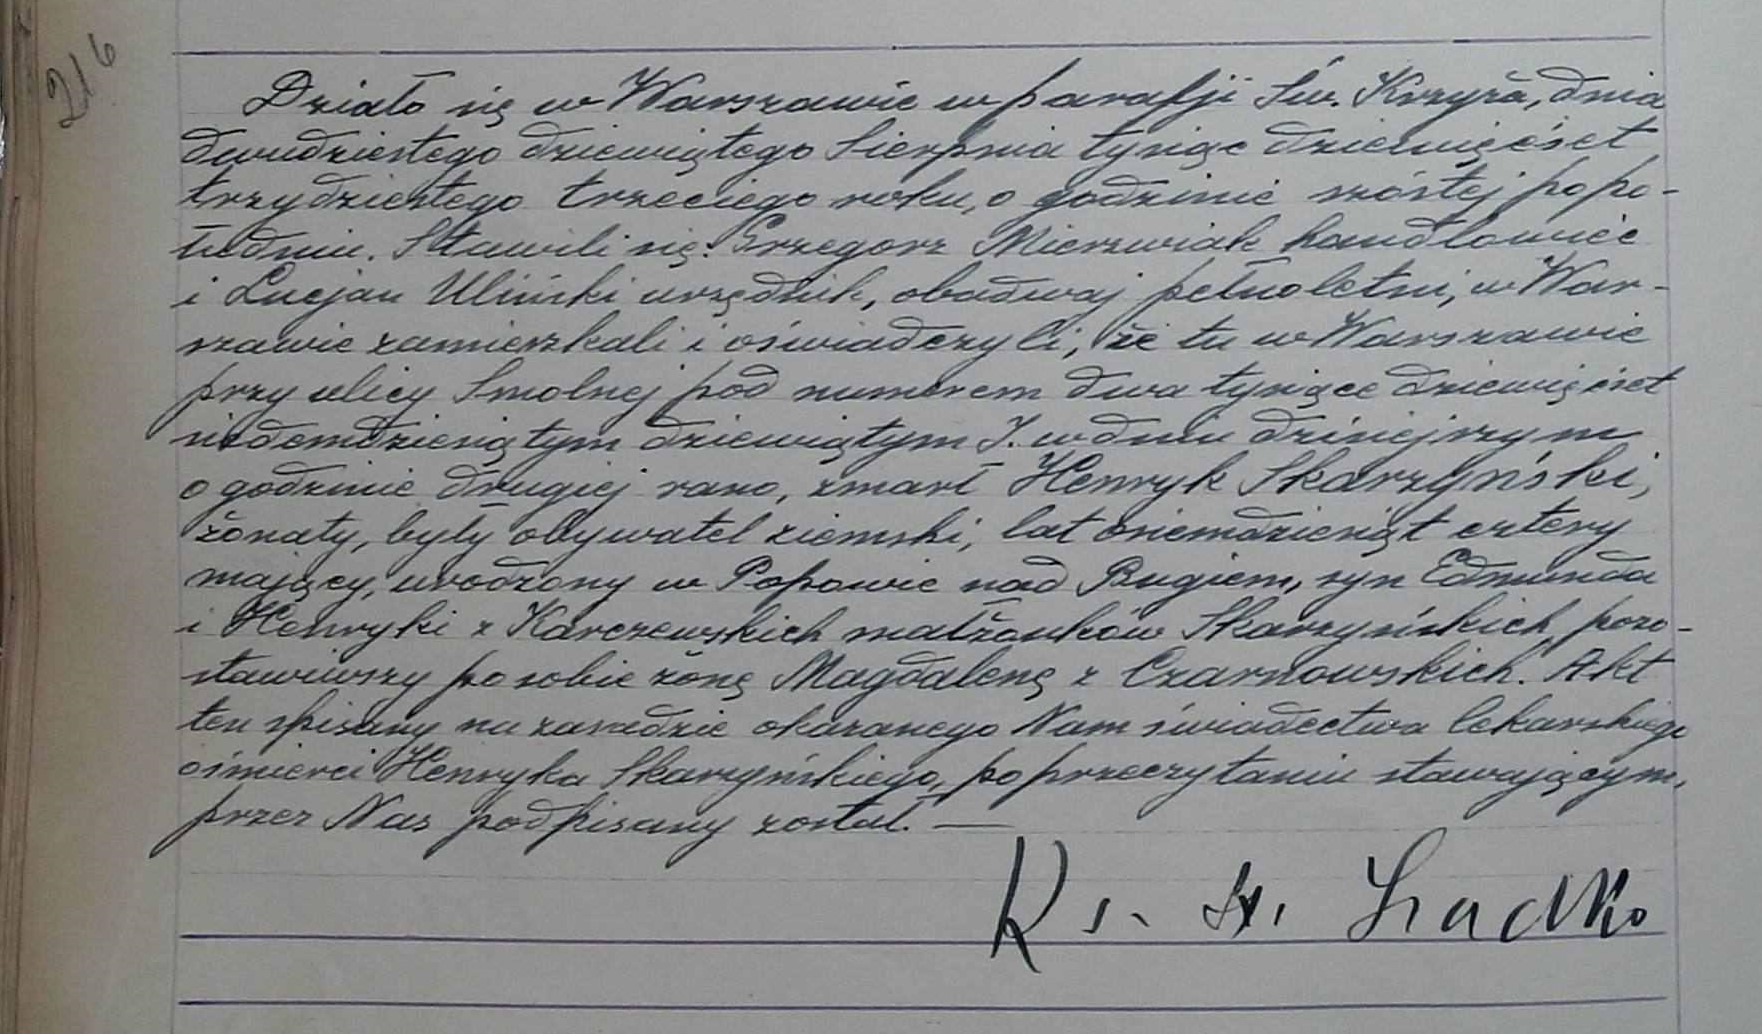 216
Działo się w Warszawie w parafji Św. Krzyża, dnia
dwudziestego dziewiątego Sierpnia tysiąc dziewięćset
trzydziestego trzeciego roku, o godzinie szóstej popo-
łudniu. Stawili się: Grzegorz Mierzwiak handlowiec
i Lucjan Uliński urzędnik, obadwaj pełnoletni, w War-
szawie zamieszkali i oświadczyli, że tu w Warszawie
przy ulicy Smolnej pod numerem dwa tysiące dziewięćset
siedemdziesiątym dziewiątym J. w dniu dzisiejszym
o godzinie drugiej rano, zmarł Henryk Skarzyński,
żonaty, były obywatel ziemski, lat osiemdziesiąt cztery
mający, urodzony w Popowie nad Bugiem, syn Edmunda
i Henryki z Karczewskich małżonków Skarzyńskich, pozo-
stawiwszy po sobie żonę Magdalenę z Czarnowskich. Akt
ten spisany na zasadzie okazanego Nam świadectwa lekarskiego
o śmierci Henryka Skarzyńskiego, po przeczytaniu stawającym,
przez Nas podpisany został. —
Ks. St.